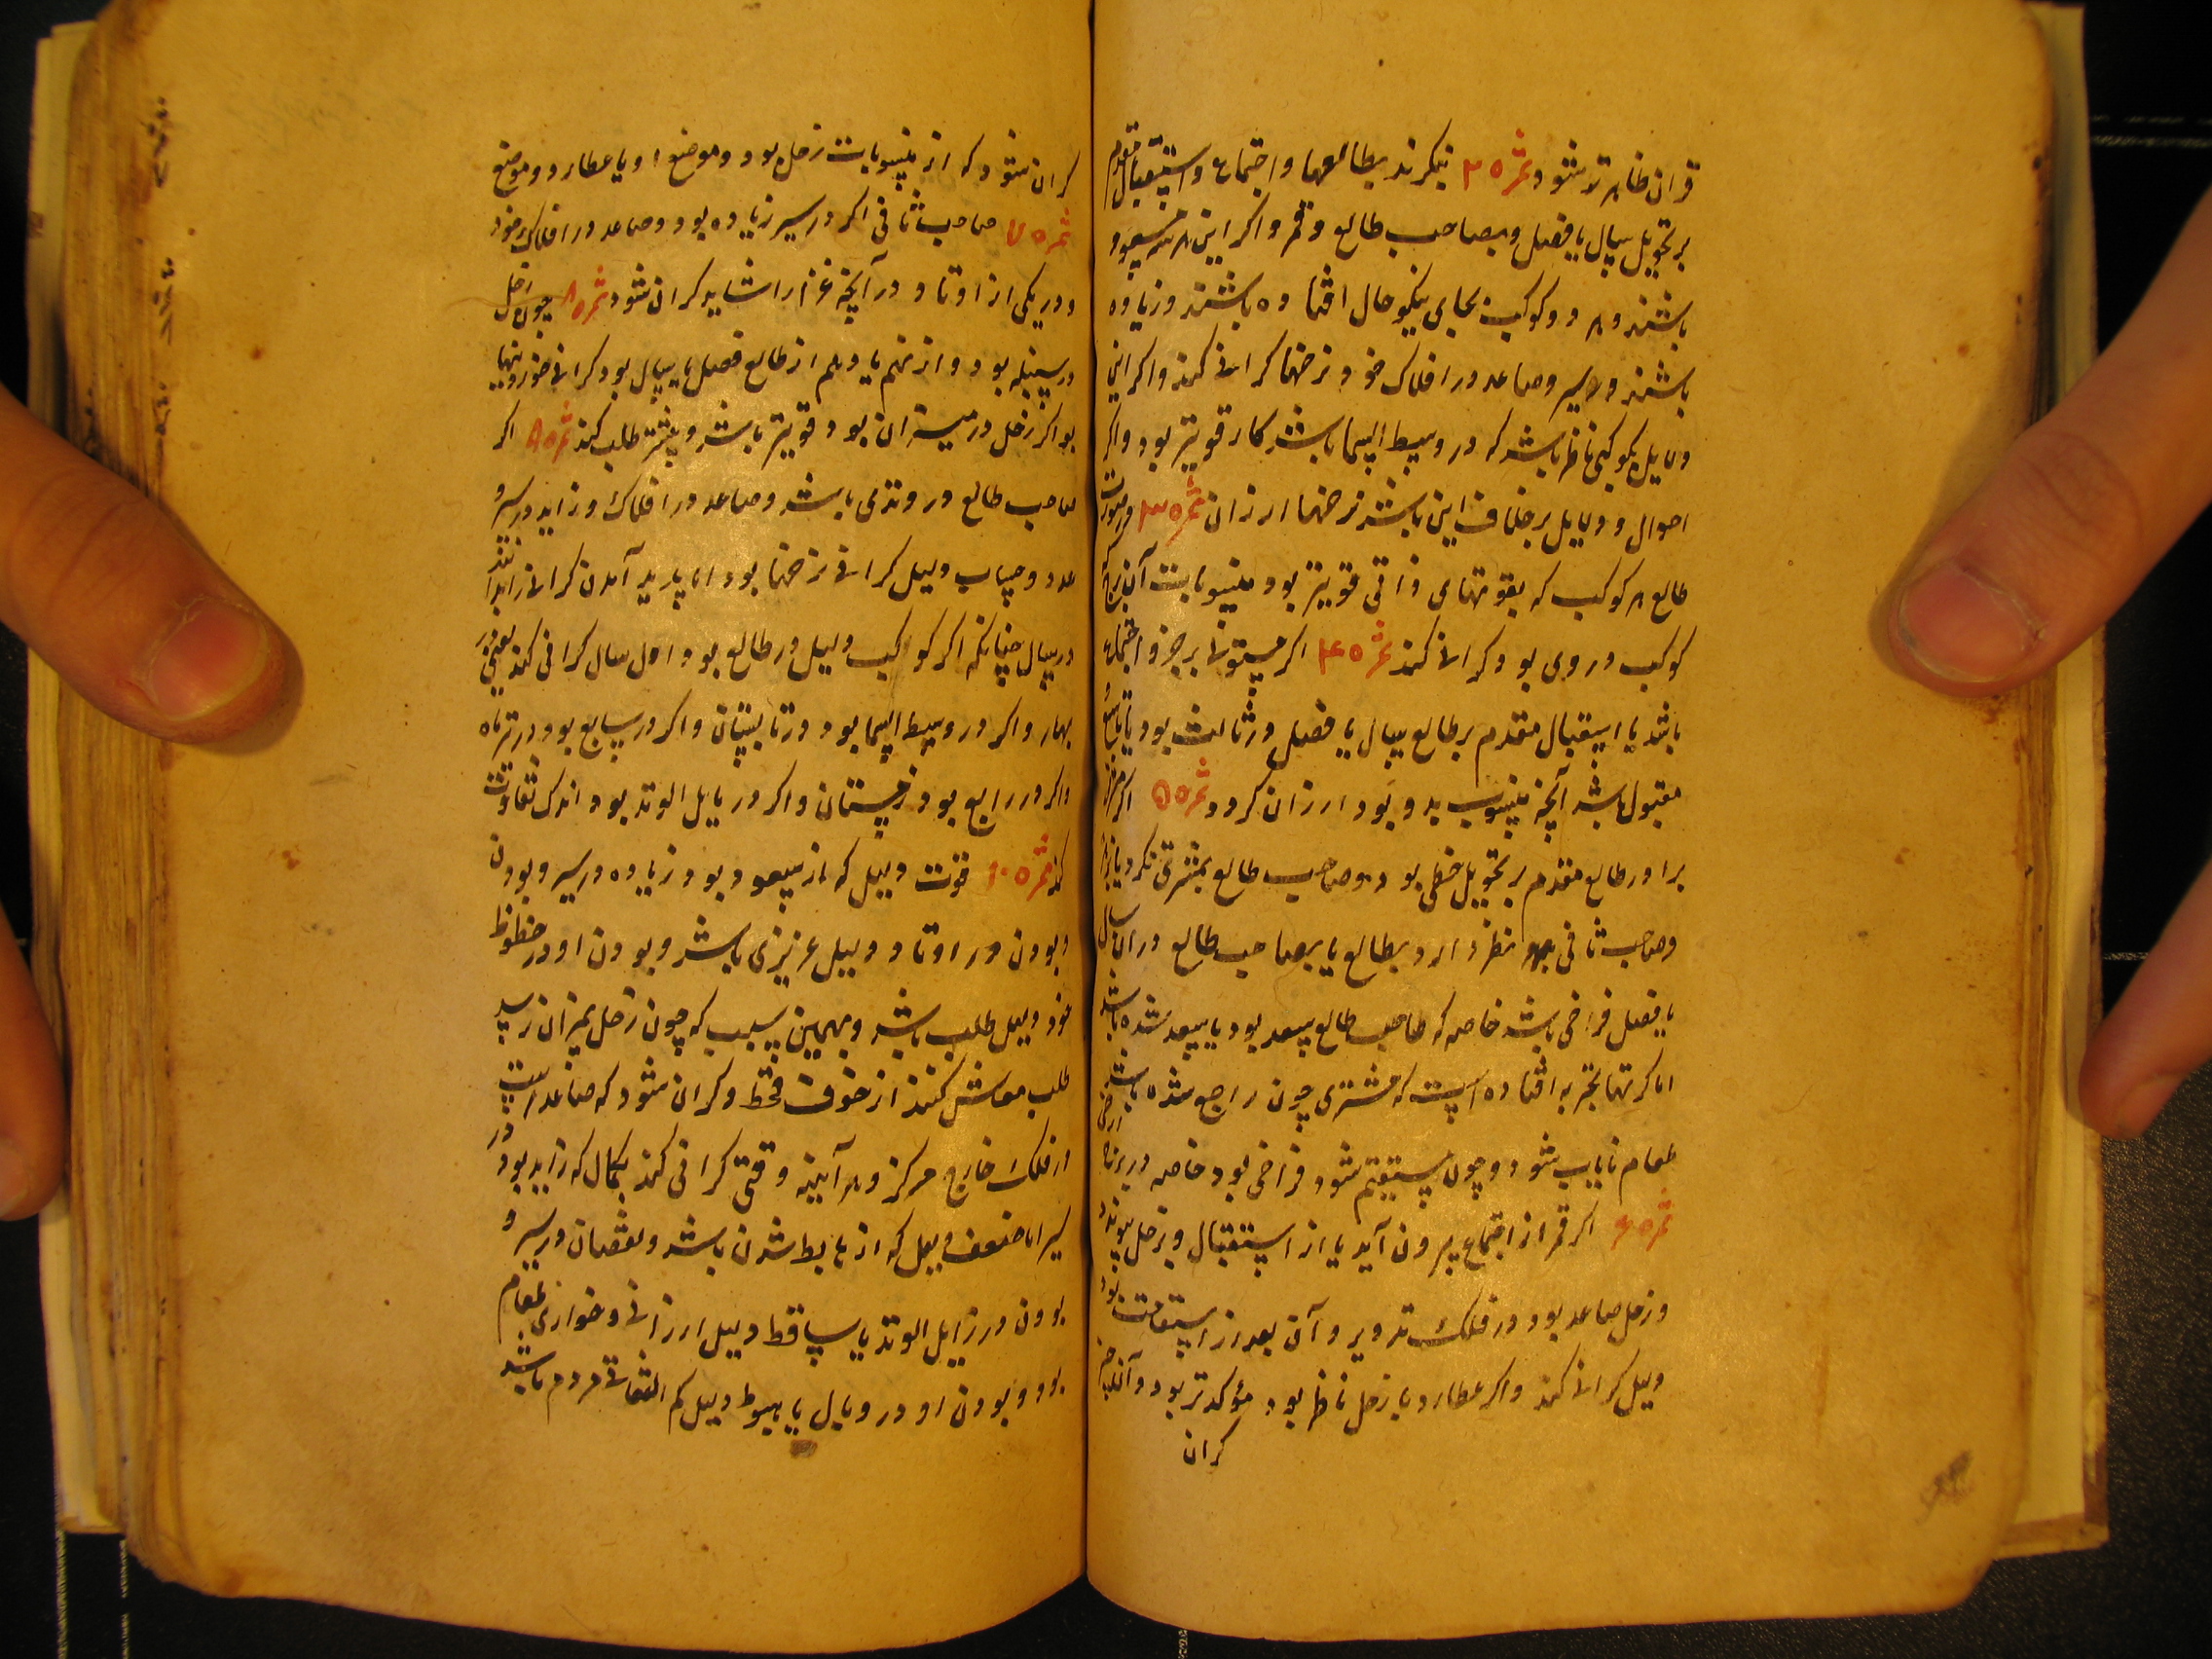 قران ظاهرتر شود ثمره ۲ بنگرند بطالعها و اجتماع و استقبال مقدم
بر تحویل سال یا فصل و بصاحب طالع و قمر و اگر این هر سه مسعود
باشند و هر دو کوکب بجای نیکو حال افتاده باشند و زیاده
باشند در سیر و صاعد در افلاک خود نرخها گرانی کند و اگر این
دلایل بکوکبی ناظر باشد که در وسط السما باشد کار قویتر بود و اگر
احوال و دلایل بر خلاف این باشد نرخها ارزان ثمره ۳ در صورت
طالع هر کوکب که بقوتهای ذاتی قویتر بود منسوبات آن برج که
کوکب در وی بود گرانی کند ثمره ۴ اگر مستولی بر جزو اجتماع
باشد یا استقبال مقدم بر طالع سال یا فصل در ثالث بود یا تاسع
مقبول باشد آنچه منسوب بدو بود ارزان گردد ثمره ۵ اگر
برا در طالع مقدم بر تحویل خطی بود و صاحب طالع بمشتری نگرد یا بزهره
و صاحب ثانی نظر دارد بطالع یا بصاحب طالع در ان سال
یا فصل فراخی باشد خاصه که صاحب طالع سعد بود یا سعد شده باشد
اما کرتها بتجربه افتاده است که مشتری چون راجع شده باشد
طعام نایاب شود و چون مستقیم شود فراخی بود خاصه در برج ارضی
ثمره ۶ اگر قمر از اجتماع بیرون آید یا از استقبال و بزحل پیوندد
و زحل صاعد بود در فلک تدویر و آن بعد از استقامت بود
دلیل گرانی کند و اگر عطارد با زحل ناظر بود مؤکدتر بود و آنچیز
گران
گران شود که از منسوبات زحل بود و موضع او یا عطارد و موضع
ثمره ۷ صاحب ثانی اگر در سیر زیاده بود و صاعد در افلاک خود
و در یکی از اوتاد در آنچه غذا را شاید گران شود ثمره ۸ چون زحل
در سنبله بود و از نهم یا دهم از طالع فصل یا سال بود گرانی خوردنیها
بود اگر زحل در میزان بود قویتر باشد و بیشتر طلب کند ثمره ۹ اگر
صاحب طالع در وتدی باشد و صاعد در افلاک و زاید در سیر و
عدد و حساب دلیل گرانی نرخها بود اما پدید آمدن گرانی زاید باشد
در سال چنانکه اگر کوکب دلیل در طالع بود اول سال گرانی کند یعنی در
بهار و اگر در وسط السما بود در تابستان و اگر در سابع بود در تیرماه
و اگر در رابع بود زمستان و اگر در مایل الوتد بود اندک تفاوت
کند ثمره ۱۰ قوت دلیل که از سعود بود زیاده در سیر و بودن
و بودن در اوتاد دلیل عزیزی باشد و بودن او در حظوظ
خود دلیل طلب باشد و بهمین سبب که چون زحل بمیزان رسد
طلب معاش کنند از خوف قحط و گران شود که صاعد است
در فلک خارج مرکز و هر آینه وقتی گرانی کند بکمال که زاید بود در
سیر اما ضعف دلیل که از هابط شدن باشد و نقصان در سیر و
بودن در زایل الوتد یا ساقط دلیل ارزانی و خواری طعام
بود و بودن او در وبال یا هبوط دلیل کم التفاتی مردم باشد